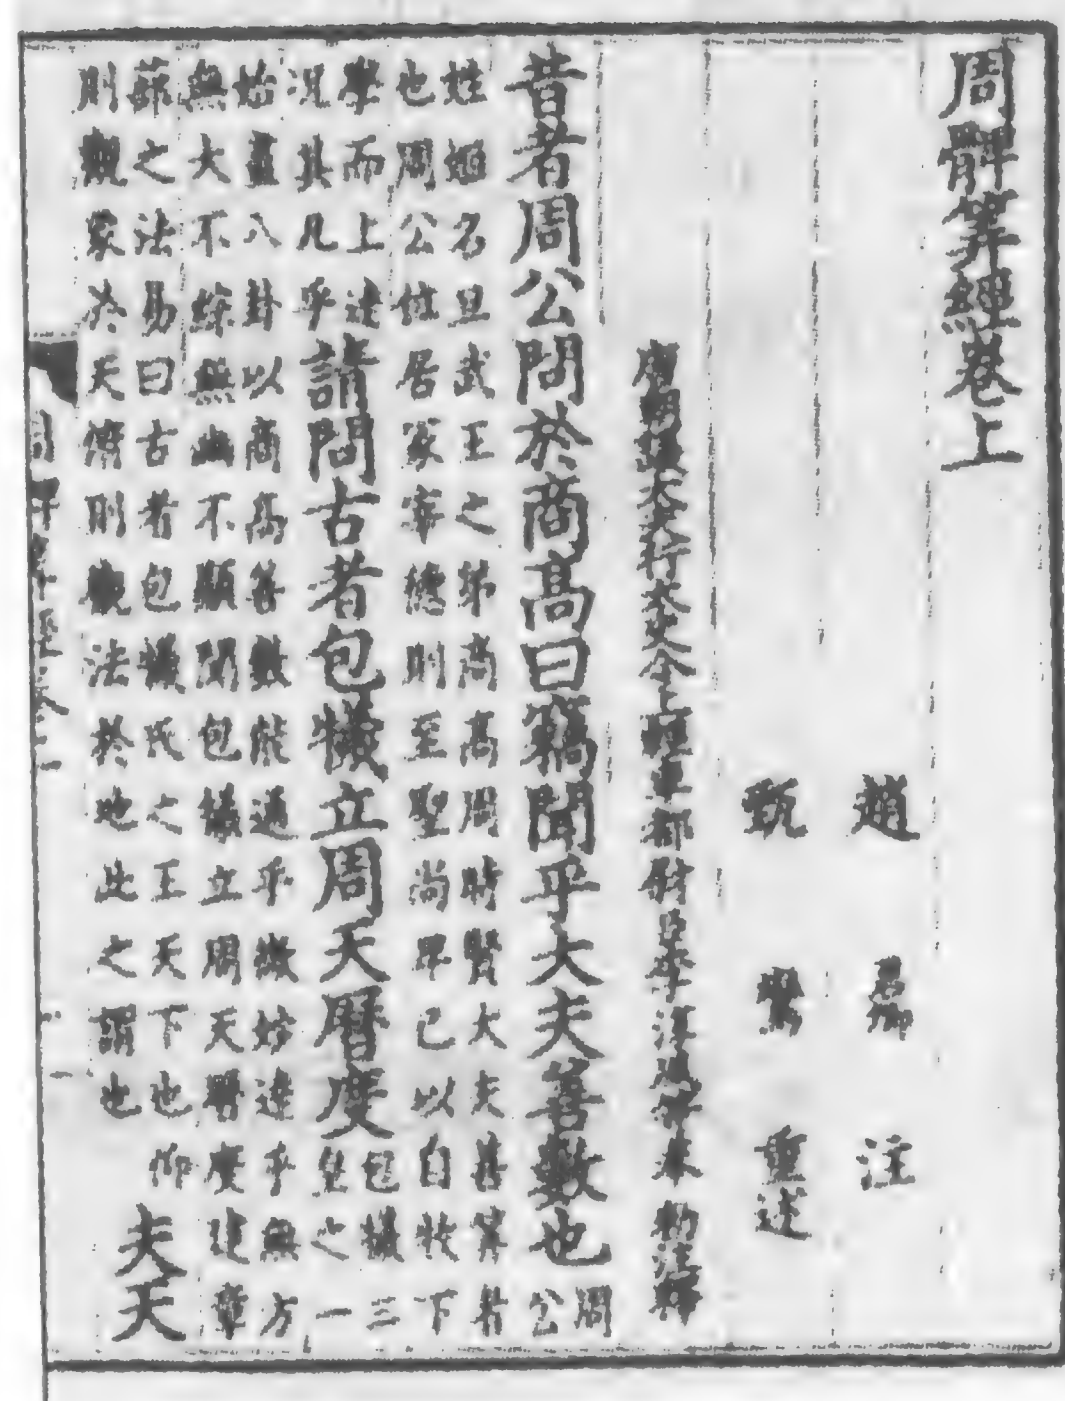 周髀筭經卷上
趙君卿注
甄鸞重述
唐朝議大夫行太史令上輕車都尉臣李淳風等奉勑注釋
昔者周公問於商高曰竊聞乎大夫善數也周公
姓姬名旦武王之弟商高周時賢大夫善筭者
也周公位居冡宰德則至聖尚卑己以自牧下
學而上達
况其凡乎
請問古者包犧立周天曆度
包犧三
皇之一
始畫八卦以商高善數能通乎微妙達乎無方
無大不綜無幽不顯聞包犧立周天曆度建章
蔀之法易曰古者包犧氏之王天下也仰
則觀象於天俯則觀法於地此之謂也
夫天